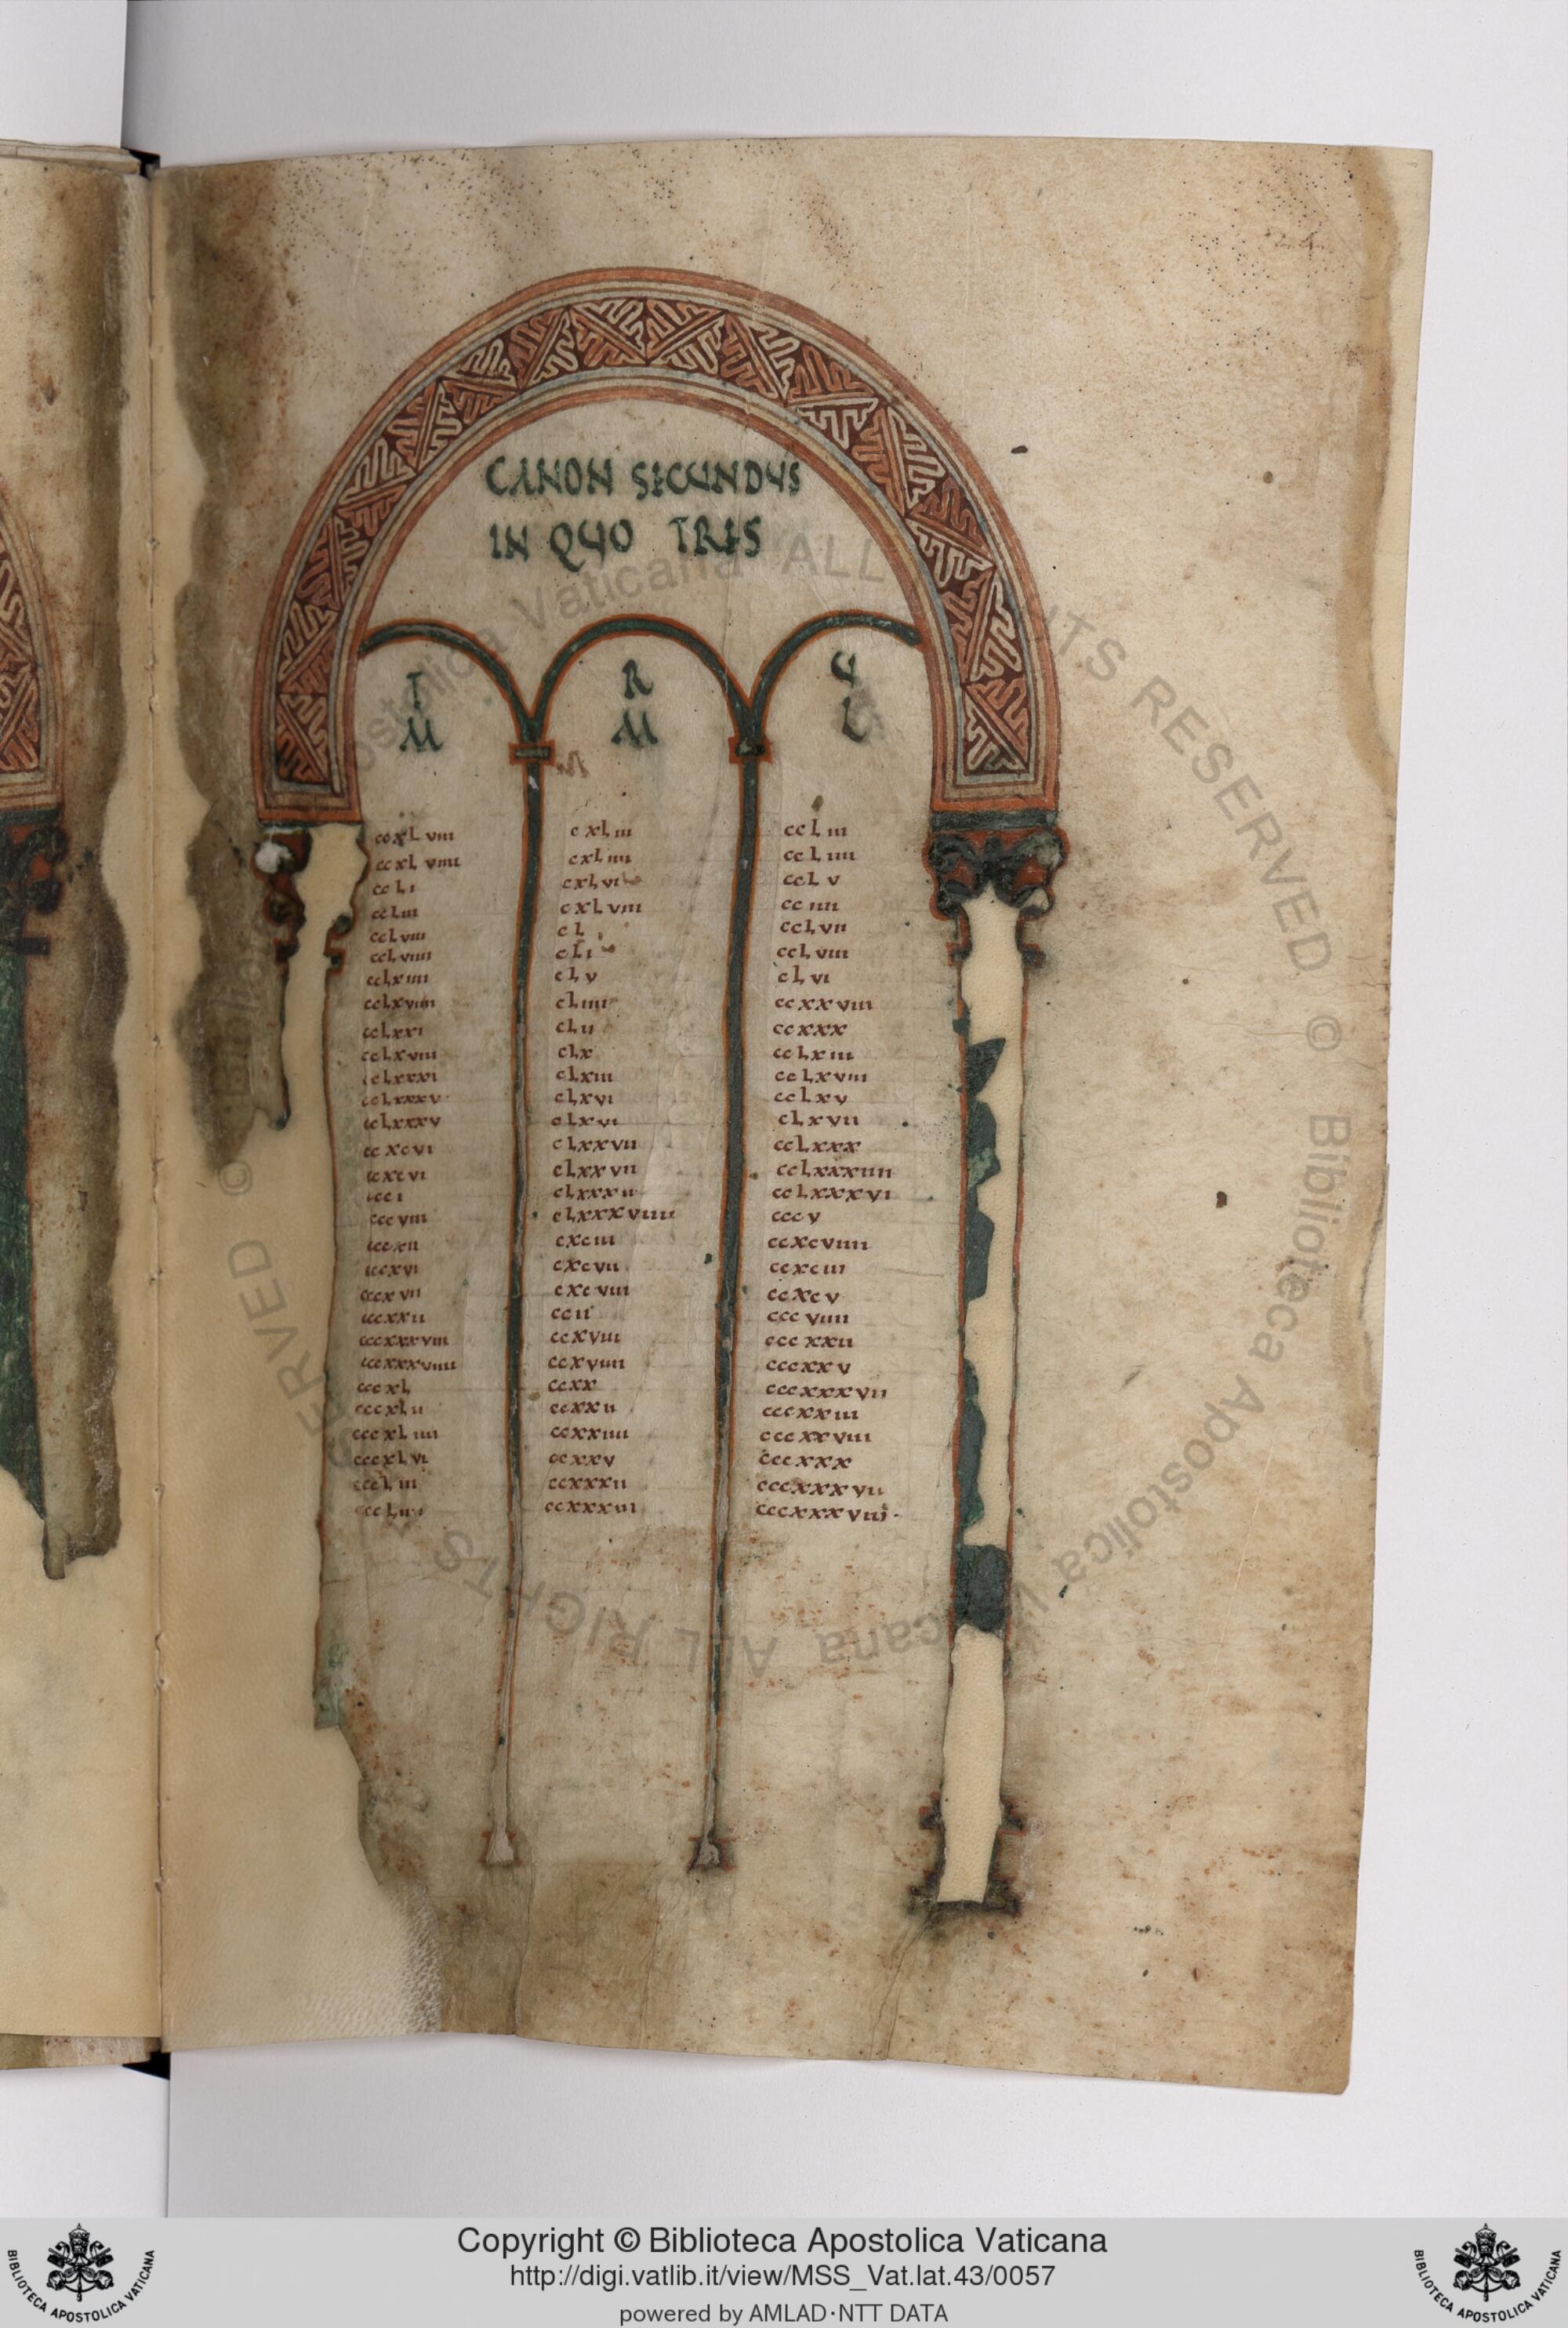 CANON SECUNDUS
IN QUO TRES
T R U
M M L
ccxlviii cxliii ccliii
ccxlviiii cxliiii ccliiii
ccli cxlvi cclv
ccliii cxlviii cciiii
cclviii cl cclvii
cclviiii cli cclviii
cclxiiii clv clvi
cclxviiii cliiii ccxxviii
cclxxi clii ccxxx
cclxviii clx cclxiii
cclxxxi clxiii cclxviii
cclxxxv clxvi cclxv
cclxxxv clxvi clxvii
ccxcvi clxxvii cclxxx
ccxcvi clxxvii cclxxxiiii
ccci clxxxii cclxxxvi
cccviii clxxxviiii cccv
cccxii cxciii ccxcviiii
cccxvi cxcvii ccxciii
cccxvii cxcviii ccxcv
cccxxii ccii cccviiii
cccxxxviii ccxviii cccxxii
cccxxxviiii ccxviiii cccxxv
cccxl ccxx cccxxxvii
cccxlii ccxxii cccxxiii
cccxliiii ccxxiiii cccxxviii
cccxlvi ccxxv cccxxx
cccliii ccxxxii cccxxxvii
cccliiii ccxxxiii cccxxxviii
Copyright © Biblioteca Apostolica Vaticana
http://digi.vatlib.it/view/MSS_Vat.lat.43/0057
powered by AMLAD·NTT DATA
BIBLIOTECA APOSTOLICA VATICANA
BIBLIOTECA APOSTOLICA VATICANA